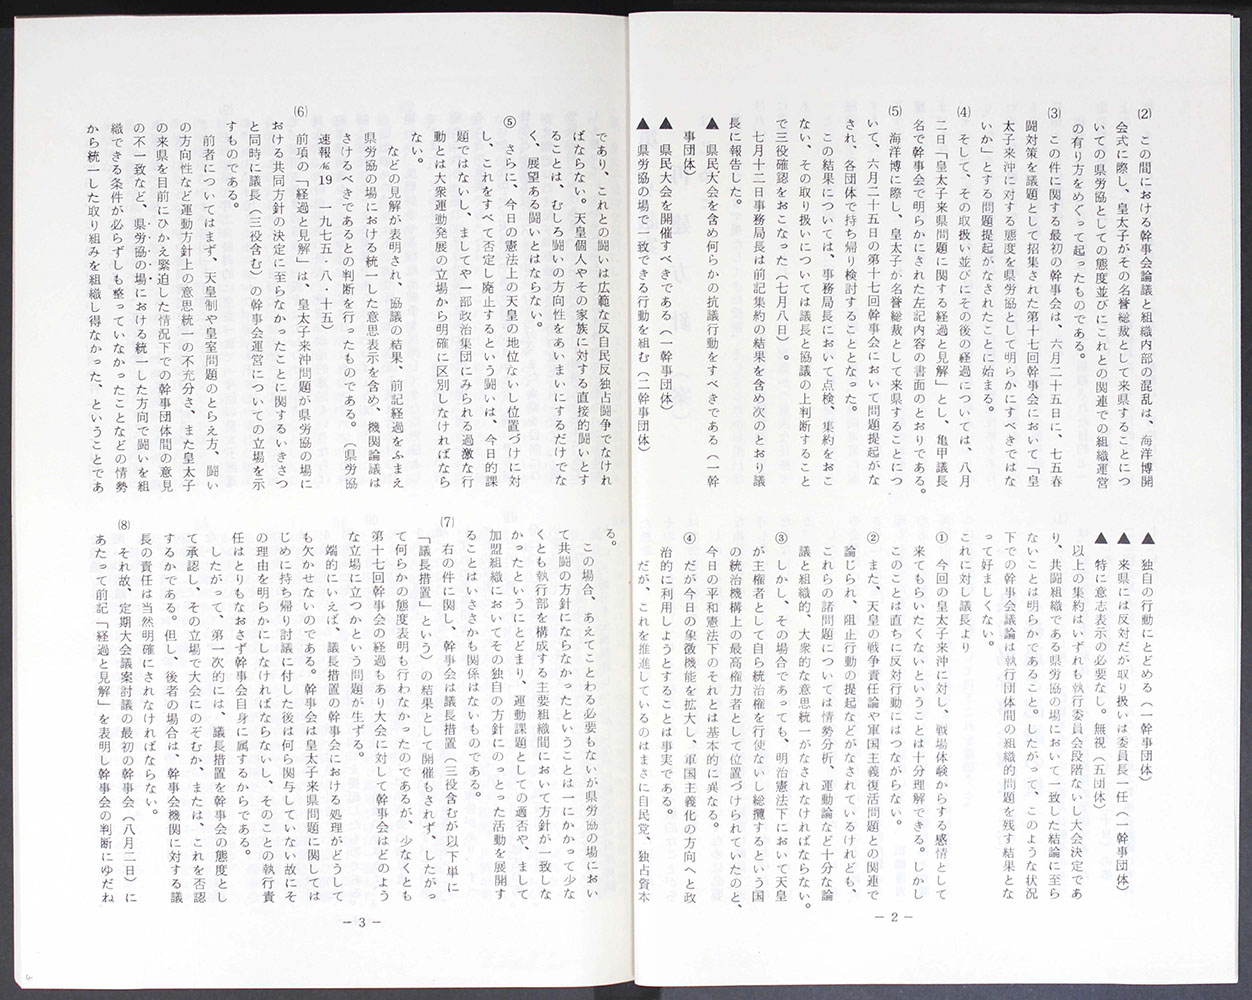 (2) この間における幹事会論議と組織内部の混乱は、海洋博開
会式に際し、皇太子がその名誉総裁として来県することにつ
いての県労協としての態度並びにこれとの関連での組織運営
の有り方をめぐって起ったものである。
(3) この件に関する最初の幹事会は、六月二十五日に、七五春
闘対策を議題として招集された第十七回幹事会において「皇
太子来沖に対する態度を県労協として明らかにすべきではな
いか」とする問題提起がなされたことに始まる。
(4) そして、その取扱い並びにその後の経過については、八月
二日「皇太子来県問題に関する経過と見解」とし、亀甲議長
名で幹事会で明らかにされた左記内容の書面のとおりである。
(5) 海洋博に際し、皇太子が名誉総裁として来県することにつ
いて、六月二十五日の第十七回幹事会において問題提起がな
され、各団体で持ち帰り検討することとなった。
この結果については、事務局長において点検、集約をおこ
ない、その取り扱いについては議長と協議の上判断すること
で三役確認をおこなった(七月八日)。
七月十二日事務局長は前記集約の結果を含め次のとおり議
長に報告した。
▲ 県民大会を含め何らかの抗議行動をすべきである(一幹
事団体)
▲ 県民大会を開催すべきである(一幹事団体)
▲ 県労協の場で一致できる行動を組む(二幹事団体)
▲ 独自の行動にとどめる(一幹事団体)
▲ 来県には反対だが取り扱いは委員長一任(一幹事団体)
▲ 特に意志表示の必要なし。無視(五団体)
以上の集約はいずれも執行委員会段階ないし大会決定であ
り、共闘組織である県労協の場において一致した結論に至ら
ないことは明らかであること。したがって、このような状況
下での幹事会議論は執行団体間の組織的問題を残す結果とな
って好ましくない。
これに対し議長より
① 今回の皇太子来沖に対し、戦場体験からする感情として
来てもらいたくないということは十分理解できる。しかし
このことは直ちに反対行動にはつながらない。
② また、天皇の戦争責任論や軍国主義復活問題との関連で
論じられ、阻止行動の提起などがなされているけれども、
これらの諸問題については情勢分析、運動論など十分な論
議と組織的、大衆的な意思統一がなされなければならない。
③ しかし、その場合であっても、明治憲法下において天皇
が主権者として自ら統治権を行使ないし総攬するという国
の統治機構上の最高権力者として位置づけられていたのと、
今日の平和憲法下のそれとは基本的に異なる。
④ だが今日の象徴機能を拡大し、軍国主義化の方向へと政
治的に利用しようとすることは事実である。
だが、これを推進しているのはまさに自民党、独占資本
— 2 —
であり、これとの闘いは広範な反自民反独占闘争でなけれ
ばならない。天皇個人やその家族に対する直接的闘いとす
ることは、むしろ闘いの方向性をあいまいにするだけでな
く、展望ある闘いとはならない。
⑤ さらに、今日の憲法上の天皇の地位ないし位置づけに対
し、これをすべて否定し廃止するという闘いは、今日的課
題ではないし、ましてや一部政治集団にみられる過激な行
動とは大衆運動発展の立場から明確に区別しなければなら
ない。
などの見解が表明され、協議の結果、前記経過をふまえ
県労協の場における統一した意思表示を含め、機関論議は
さけるべきであるとの判断を行ったものである。(県労協
速報№19 一九七五・八・十五)
(6) 前項の「経過と見解」は、皇太子来沖問題が県労協の場に
おける共同方針の決定に至らなかったことに関するいきさつ
と同時に議長(三役含む)の幹事会運営についての立場を示
すものである。
前者についてはまず、天皇制や皇室問題のとらえ方、闘い
の方向性など運動方針上の意思統一の不充分さ、また皇太子
の来県を目前にひかえ緊迫した情況下での幹事団体間の意見
の不一致など、県労協の場における統一した方向で闘いを組
織できる条件が必らずしも整っていなかったことなどの情勢
から統一した取り組みを組織し得なかった、ということであ
る。
この場合、あえてことわる必要もないが県労協の場におい
て共闘の方針にならなかったということは一にかかって少な
くとも執行部を構成する主要組織間において方針が一致しな
かったというにとどまり、運動課題としての適否や、まして
加盟組織においてその独自の方針にのっとった活動を展開す
ることはいささかも関係はないものである。
(7) 右の件に関し、幹事会は議長措置(三役含むが以下単に
「議長措置」という)の結果として開催もされず、したがっ
て何らかの態度表明も行わなかったのであるが、少なくとも
第十七回幹事会の経過もあり大会に対して幹事会はどのよう
な立場に立つかという問題が生ずる。
端的にいえば、議長措置の幹事会における処理がどうして
も欠かせないのである。幹事会は皇太子来県問題に関しては
じめに持ち帰り討議に付した後は何ら関与していない故にそ
の理由を明らかにしなければならないし、そのことの執行責
任はとりもなおさず幹事会自身に属するからである。
したがって、第一次的には、議長措置を幹事会の態度とし
て承認し、その立場で大会にのぞむか、または、これを否認
するかである。但し、後者の場合は、幹事会機関に対する議
長の責任は当然明確にされなければならない。
(8) それ故、定期大会議案討議の最初の幹事会(八月二日)に
あたって前記「経過と見解」を表明し幹事会の判断にゆだね
— 3 —